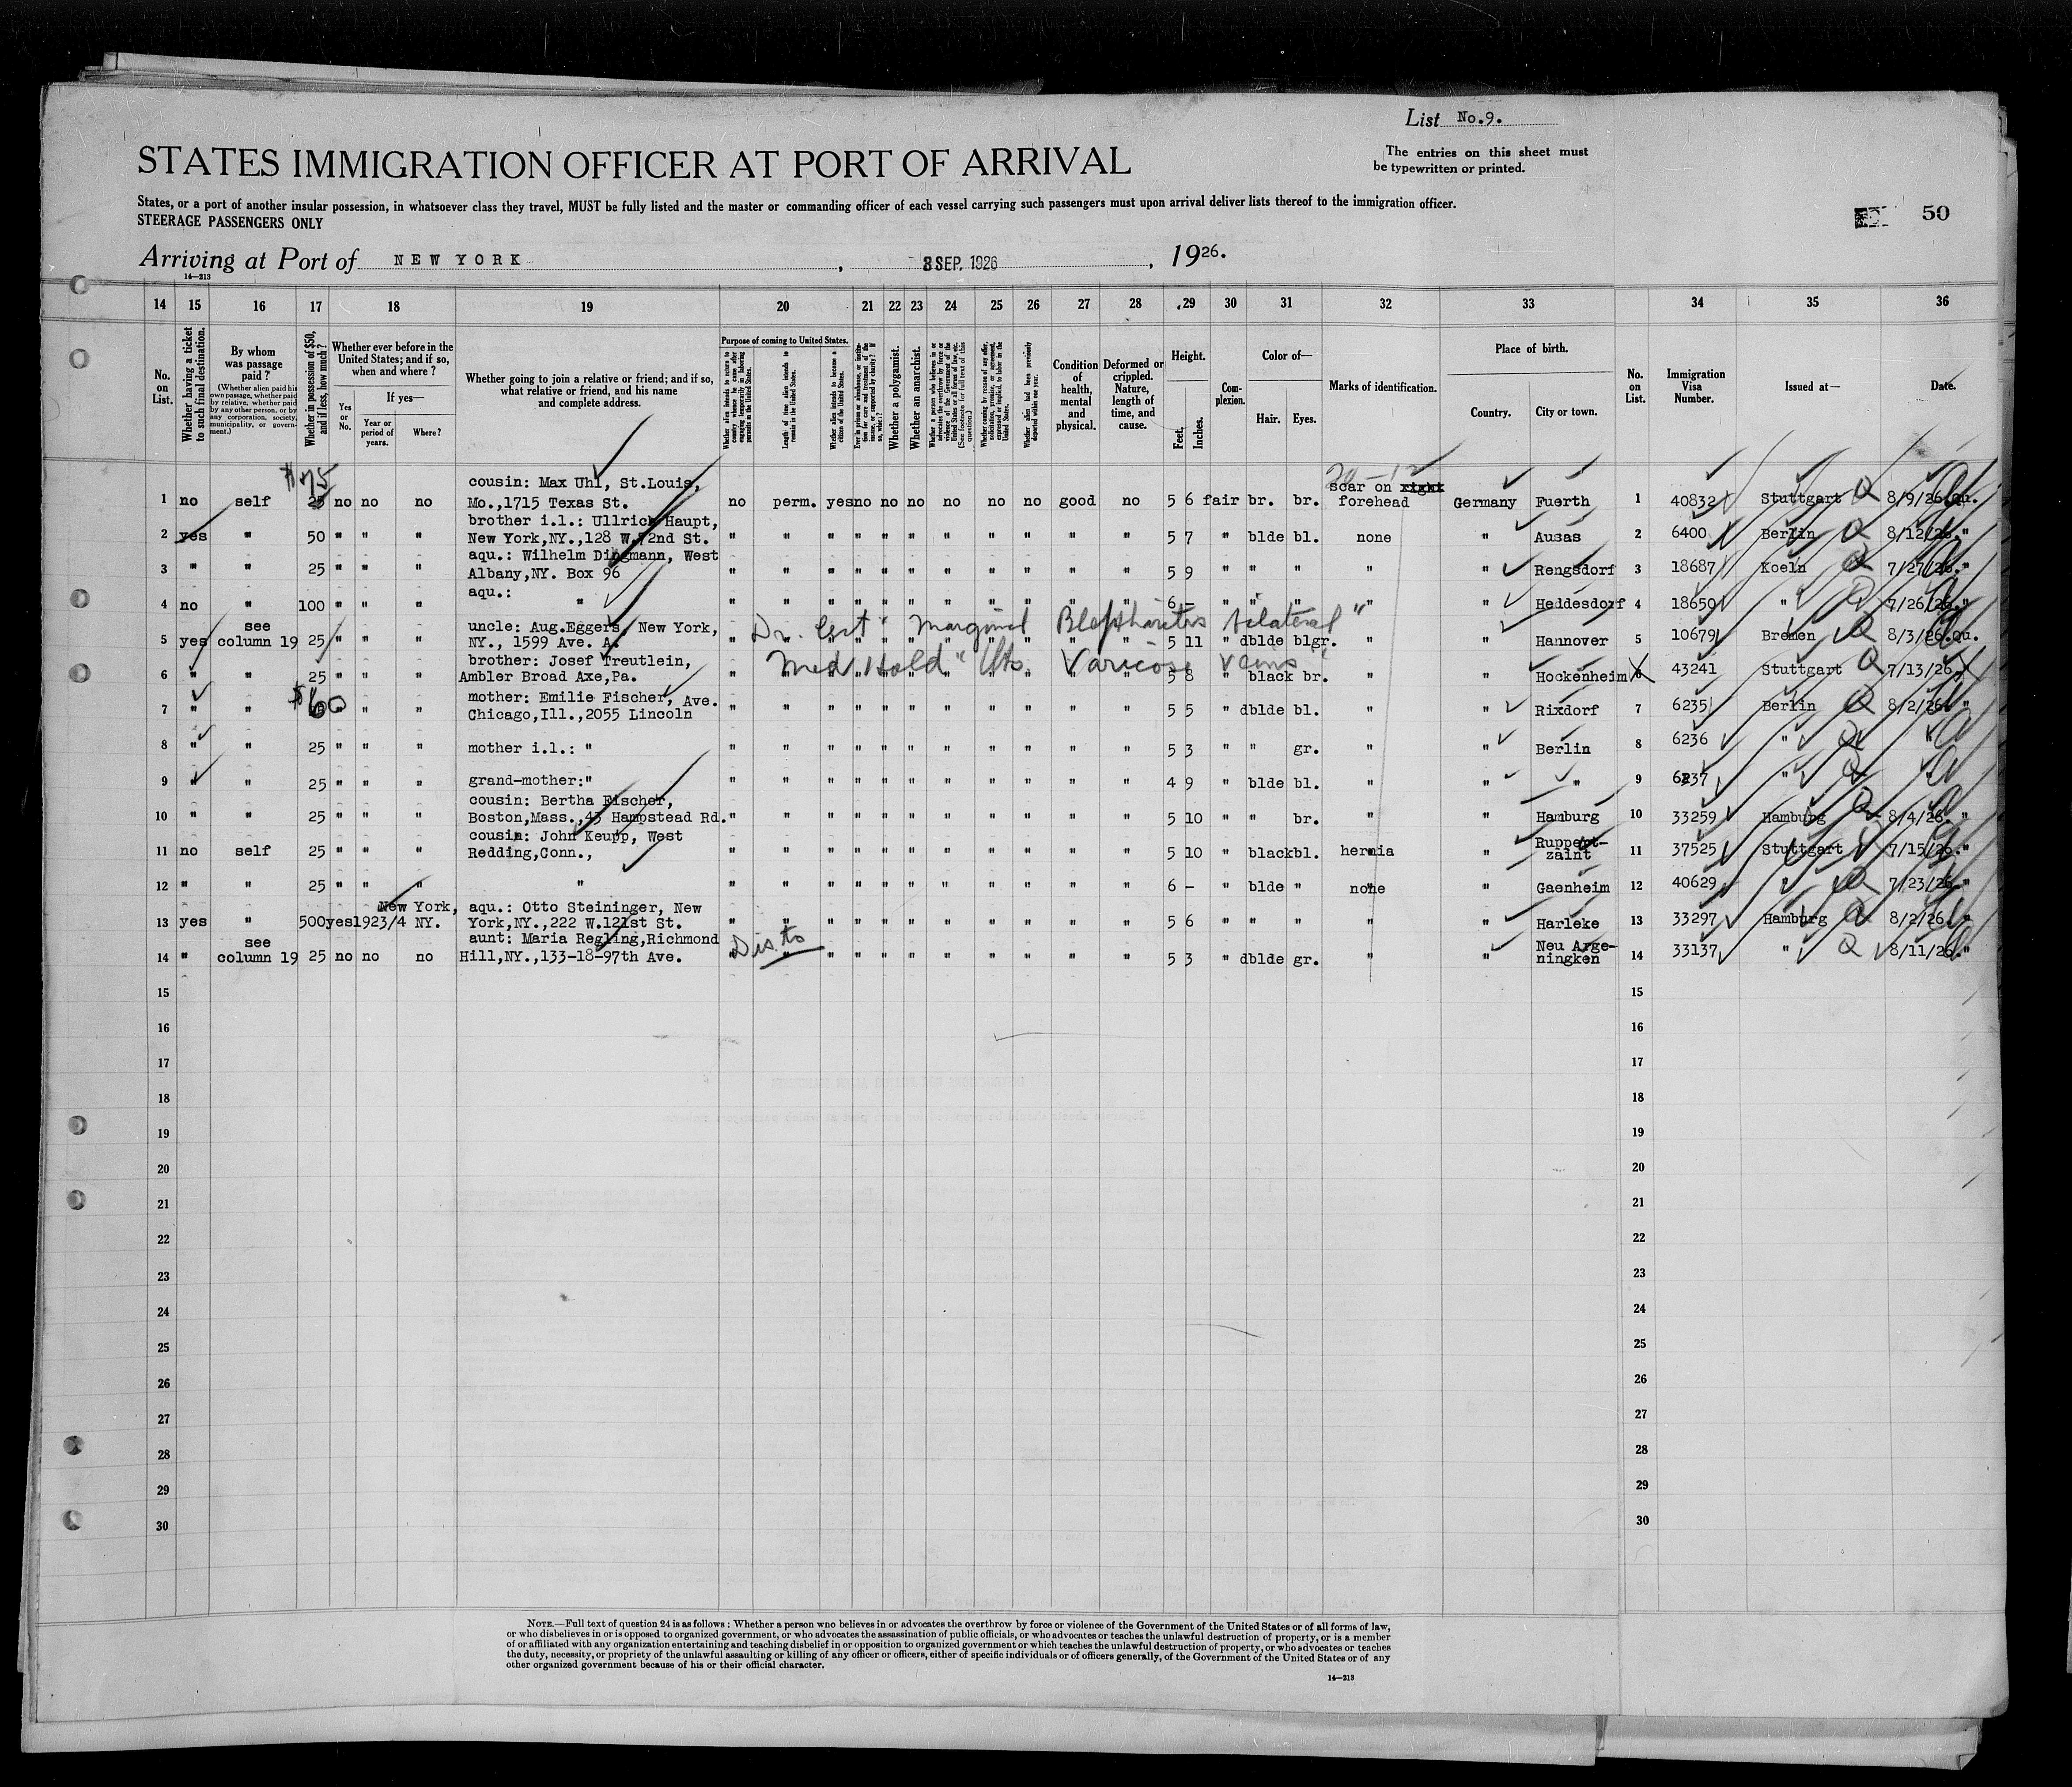 List No.9.
STATES IMMIGRATION OFFICER AT PORT OF ARRIVAL
The entries on this sheet must
be typewritten or printed.
States, or a port of another insular possession, in whatsoever class they travel, MUST be fully listed and the master or commanding officer of each vessel carrying such passengers must upon arrival deliver lists thereof to the immigration officer.
STEERAGE PASSENGERS ONLY
50
Arriving at Port of NEW YORK, 3 SEP. 1926, 1926.
14—213
14 15 16 17 18 19 20 21 22 23 24 25 26 27 28 29 30 31 32 33 34 35 36
No. on List.
Whether having a ticket to such final destination.
By whom was passage paid?
(Whether alien paid his own passage, whether paid by relative, whether paid by any other person, or by any corporation, society, municipality, or government.)
Whether in possession of $50, and if less, how much?
Whether ever before in the United States; and if so, when and where?
Yes or No.
If yes—
Year or period of years.
Where?
Whether going to join a relative or friend; and if so, what relative or friend, and his name and complete address.
Purpose of coming to United States.
Length of time alien intends to remain in the United States.
Whether alien intends to become a citizen of the United States.
Whether a polygamist.
Whether an anarchist.
Condition of health, mental and physical.
Deformed or crippled. Nature, length of time, and cause.
Height.
Feet. Inches.
Complexion.
Color of—
Hair. Eyes.
Marks of identification.
Place of birth.
Country. City or town.
No. on List.
Immigration Visa Number.
Issued at—
Date.
$75
cousin: Max Uhl, St.Louis,
scar on right
1 no self 25 no no no Mo.,1715 Texas St. no perm. yes no no no no no no good no 5 6 fair br. br. forehead Germany Fuerth 1 40832 Stuttgart Q 8/9/26 Qu.
brother i.l.: Ullrich Haupt,
2 yes " 50 " " " New York,NY.,128 W.72nd St. " " " " " " " " " " " 5 7 " blde bl. none " Ausas 2 6400 Berlin Q 8/12/26. "
aqu.: Wilhelm Dingmann, West
3 " " 25 " " " Albany,NY. Box 96 " " " " " " " " " " " 5 9 " " " " " Rengsdorf 3 18687 Koeln Q 7/27/26. "
aqu.:
4 no " 100 " " " " " " " " " " " " " " " 6 - " " " " " Heldesdorf 4 18650 " Q 7/26/26. "
see
uncle: Aug.Eggers, New York,
Marginal Blepharitis bilateral"
5 yes column 19 25 " " " NY., 1599 Ave. A. " " " " " " " " " " " 5 11 " dblde blgr. " " Hannover 5 10679 Bremen Q 8/3/26 Qu.
brother: Josef Treutlein,
Med. Hold" Varicose veins"
6 " " 25 " " " Ambler Broad Axe,Pa. " " " " " " " " " " " 5 8 " black br. " " Hockenheim 6 43241 Stuttgart Q 7/13/26
$60
mother: Emilie Fischer, Ave.
7 " " " " " Chicago,Ill.,2055 Lincoln " " " " " " " " " " " 5 5 " dblde bl. " " Rixdorf 7 6235 Berlin Q 8/2/26 "
8 " " 25 " " " mother i.l.: " " " " " " " " " " " " 5 3 " " gr. " " Berlin 8 6236 " Q "
9 " " 25 " " " grand-mother:" " " " " " " " " " " " 4 9 " blde bl. " " " 9 6237 " Q "
cousin: Bertha Fischer,
10 " " 25 " " " Boston,Mass.,43 Hampstead Rd. " " " " " " " " " " " 5 10 " " br. " " Hamburg 10 33259 Hamburg Q 8/4/26 "
cousin: John Keupp, West
Ruppert-
11 no self 25 " " " Redding,Conn., " " " " " " " " " " " 5 10 " black bl. hernia " zaint 11 37525 Stuttgart 7/15/26. "
12 " " 25 " " " " " " " " " " " " " " " 6 - " blde " none " Gaenheim 12 40629 " Q 7/23/26. "
New York, aqu.: Otto Steininger, New
13 yes " 500 yes 1923/4 NY. York,NY.,222 W.121st St. " " " " " " " " " " " 5 6 " " " " " Harleke 13 33297 Hamburg Q 8/2/26. "
see
aunt: Maria Regling,Richmond
Dis. to
Neu Arge-
14 " column 19 25 no no no Hill,NY.,133-18-97th Ave. " " " " " " " " " " " 5 3 " dblde gr. " " ningken 14 33137 " Q 8/11/26. "
15 15
16 16
17 17
18 18
19 19
20 20
21 21
22 22
23 23
24 24
25 25
26 26
27 27
28 28
29 29
30 30
NOTE.—Full text of question 24 is as follows: Whether a person who believes in or advocates the overthrow by force or violence of the Government of the United States or of all forms of law,
or who disbelieves in or is opposed to organized government, or who advocates the assassination of public officials, or who advocates or teaches the unlawful destruction of property, or is a member
of or affiliated with any organization entertaining and teaching disbelief in or opposition to organized government or which teaches the unlawful destruction of property, or who advocates or teaches
the duty, necessity, or propriety of the unlawful assaulting or killing of any officer or officers, either of specific individuals or of officers generally, of the Government of the United States or of any
other organized government because of his or their official character.
14—213